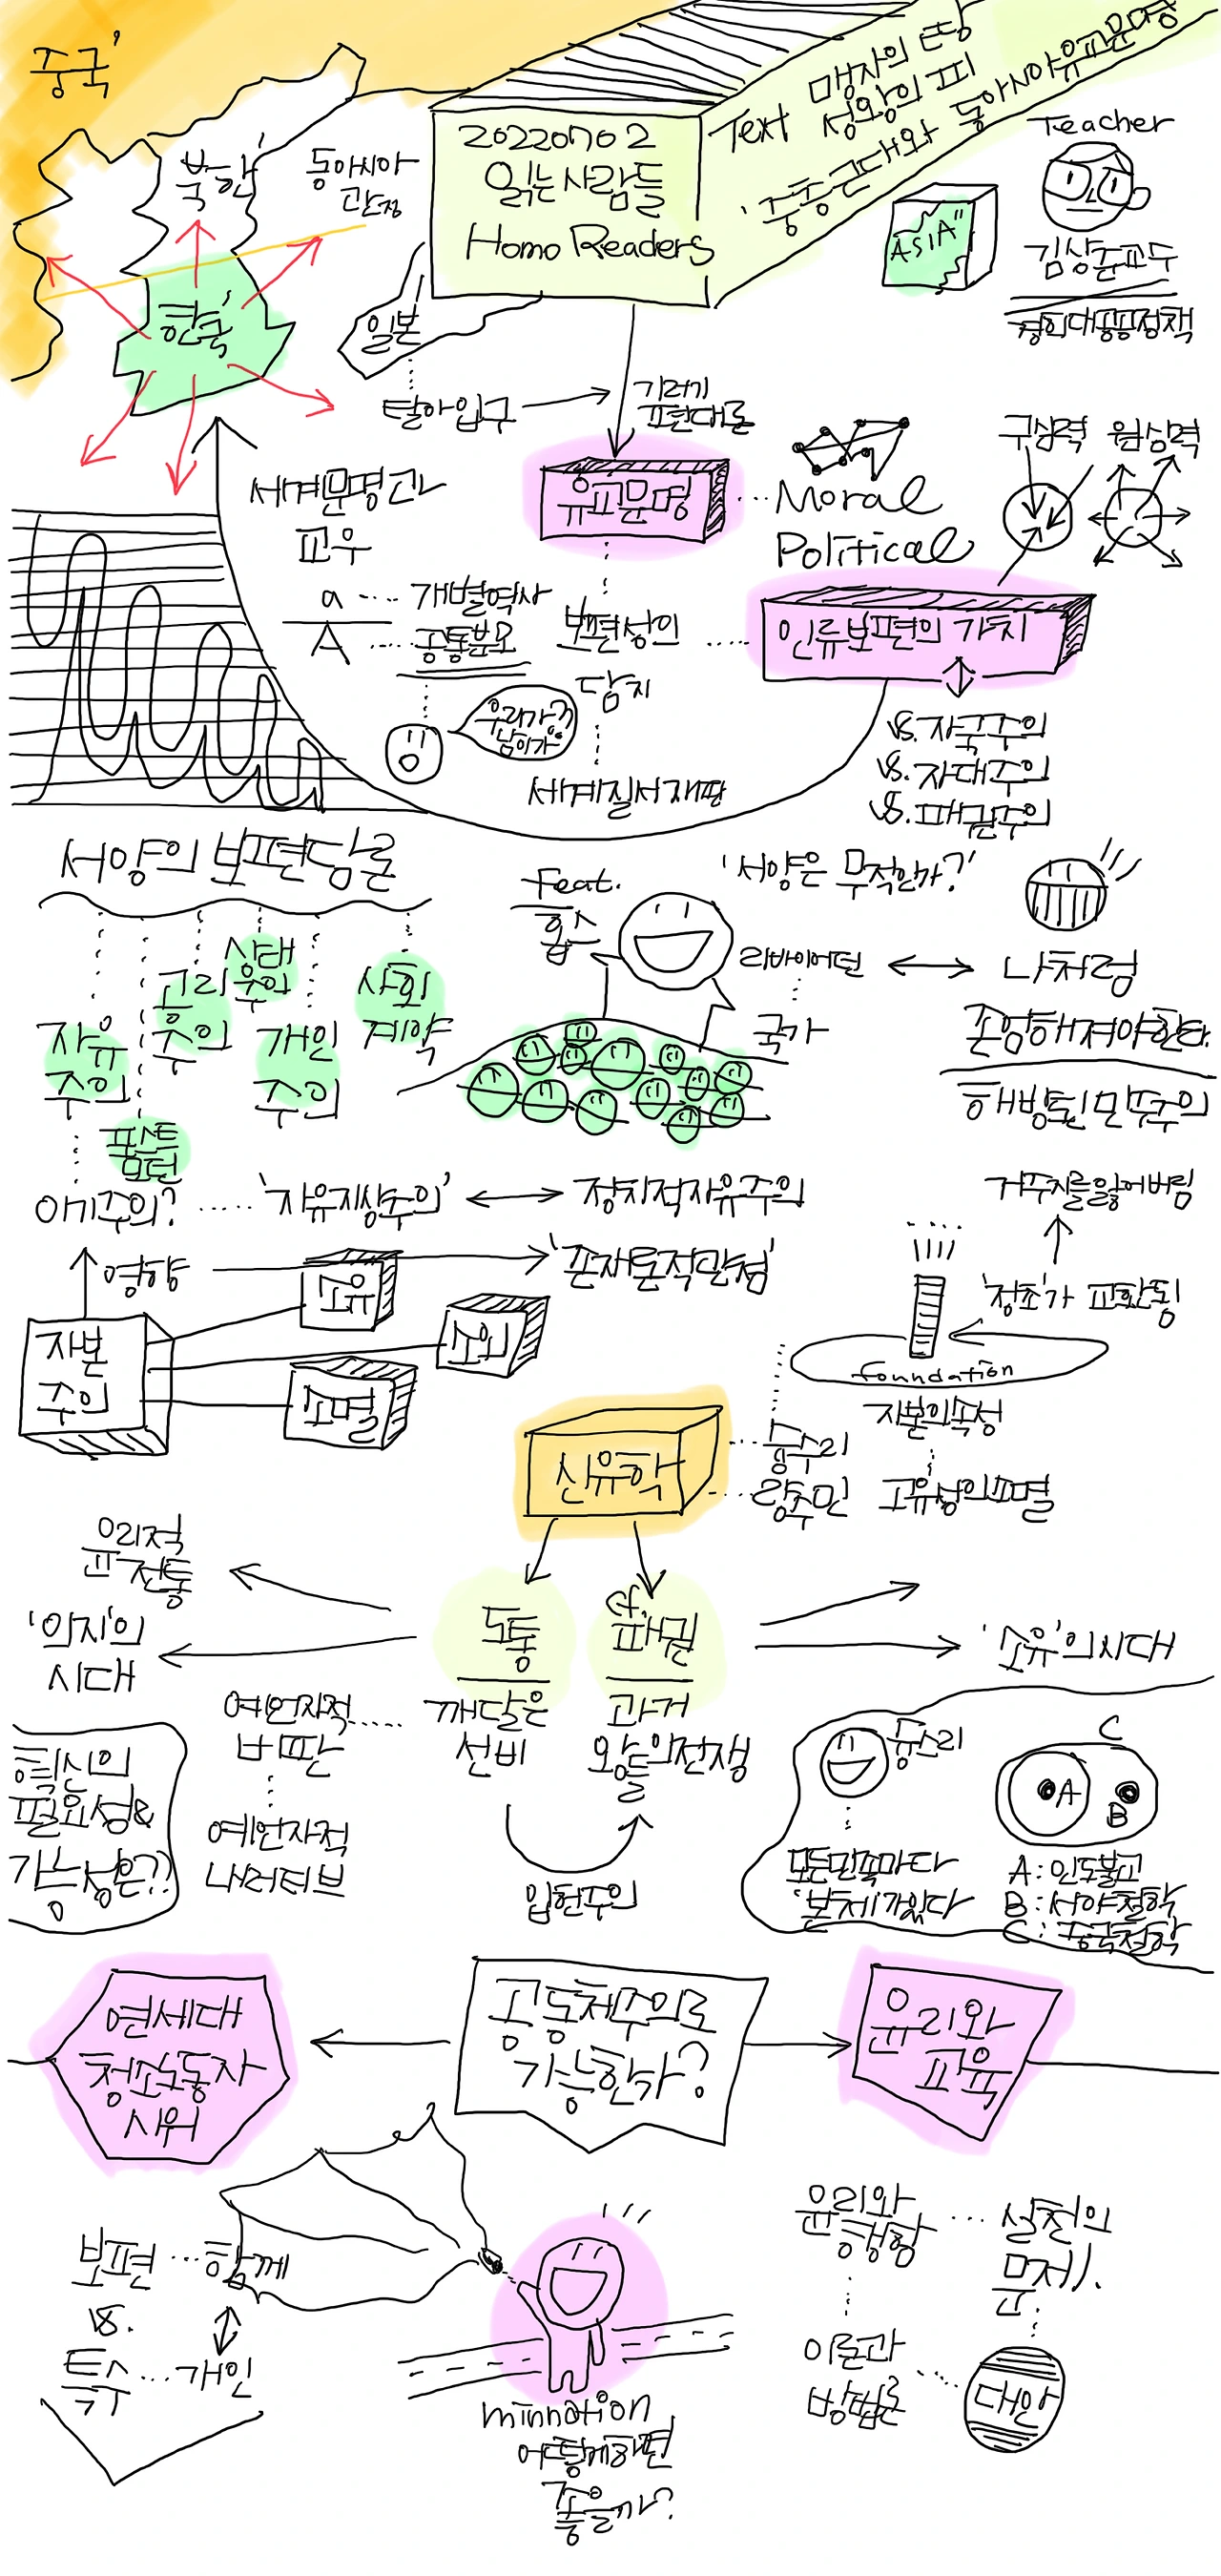 중국'
Text 맹자의 땀
성왕의 피
'중층근대와 동아시아유교문명
20220702
읽는사람들
Homo Readers
북한'
동아시아
관점
한국'
일본
ASIA"
Teacher
김상준교수
경희대공공정책
탈아입구
기러기
편대론
유교문명
Moral
Political
구심력
원심력
세계문명과
교우
a
개별역사
A
공통분모
우리가
남이가?
보편성의
담지
세계질서재편
인류보편의 가치
vs. 자국주의
vs. 자대주의
vs. 패권주의
서양의 보편담론
자유
주의
포스트
모던
공리
주의
상대
주의
개인
주의
사회
계약
Feat.
홉스
'서양은 무적인가?'
리바이어던
국가
나처럼
존엄해져야한다.
해방된민주주의
이기주의?
'자유지상주의'
정치적자유주의
영향
'존재론적만점'
거주지를잃어버림
'장소'가 교환됨
foundation
자본의속성
고유성의파멸
자본
주의
소유
소외
소멸
신유학
량수민
도통
깨달은
선비
cf.
패권
과거
왕들의전쟁
윤리적
전통
'의지'의
시대
'소유'의시대
예언자적
비판
예언자적
내러티브
혁신의
필요성&
가능성은??
입헌주의
모든민족마다
'본체'가있다
C
A
B
A: 인도불교
B: 서양철학
C: 중국철학
공동체주의로
가능한가?
연세대
청소노동자
시위
윤리와
교육
보편
함께
vs.
특수
개인
윤리와
행함
실천의
문제.
이론과
방법론
대안
minnation
어떻게하면
좋을까?